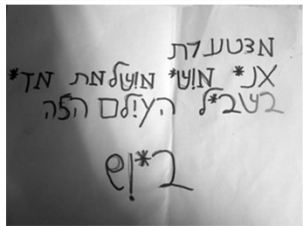 מצטערת
אנ* מוש* מושלמת מד*
בשב*ל העולם הזה
ב*וש